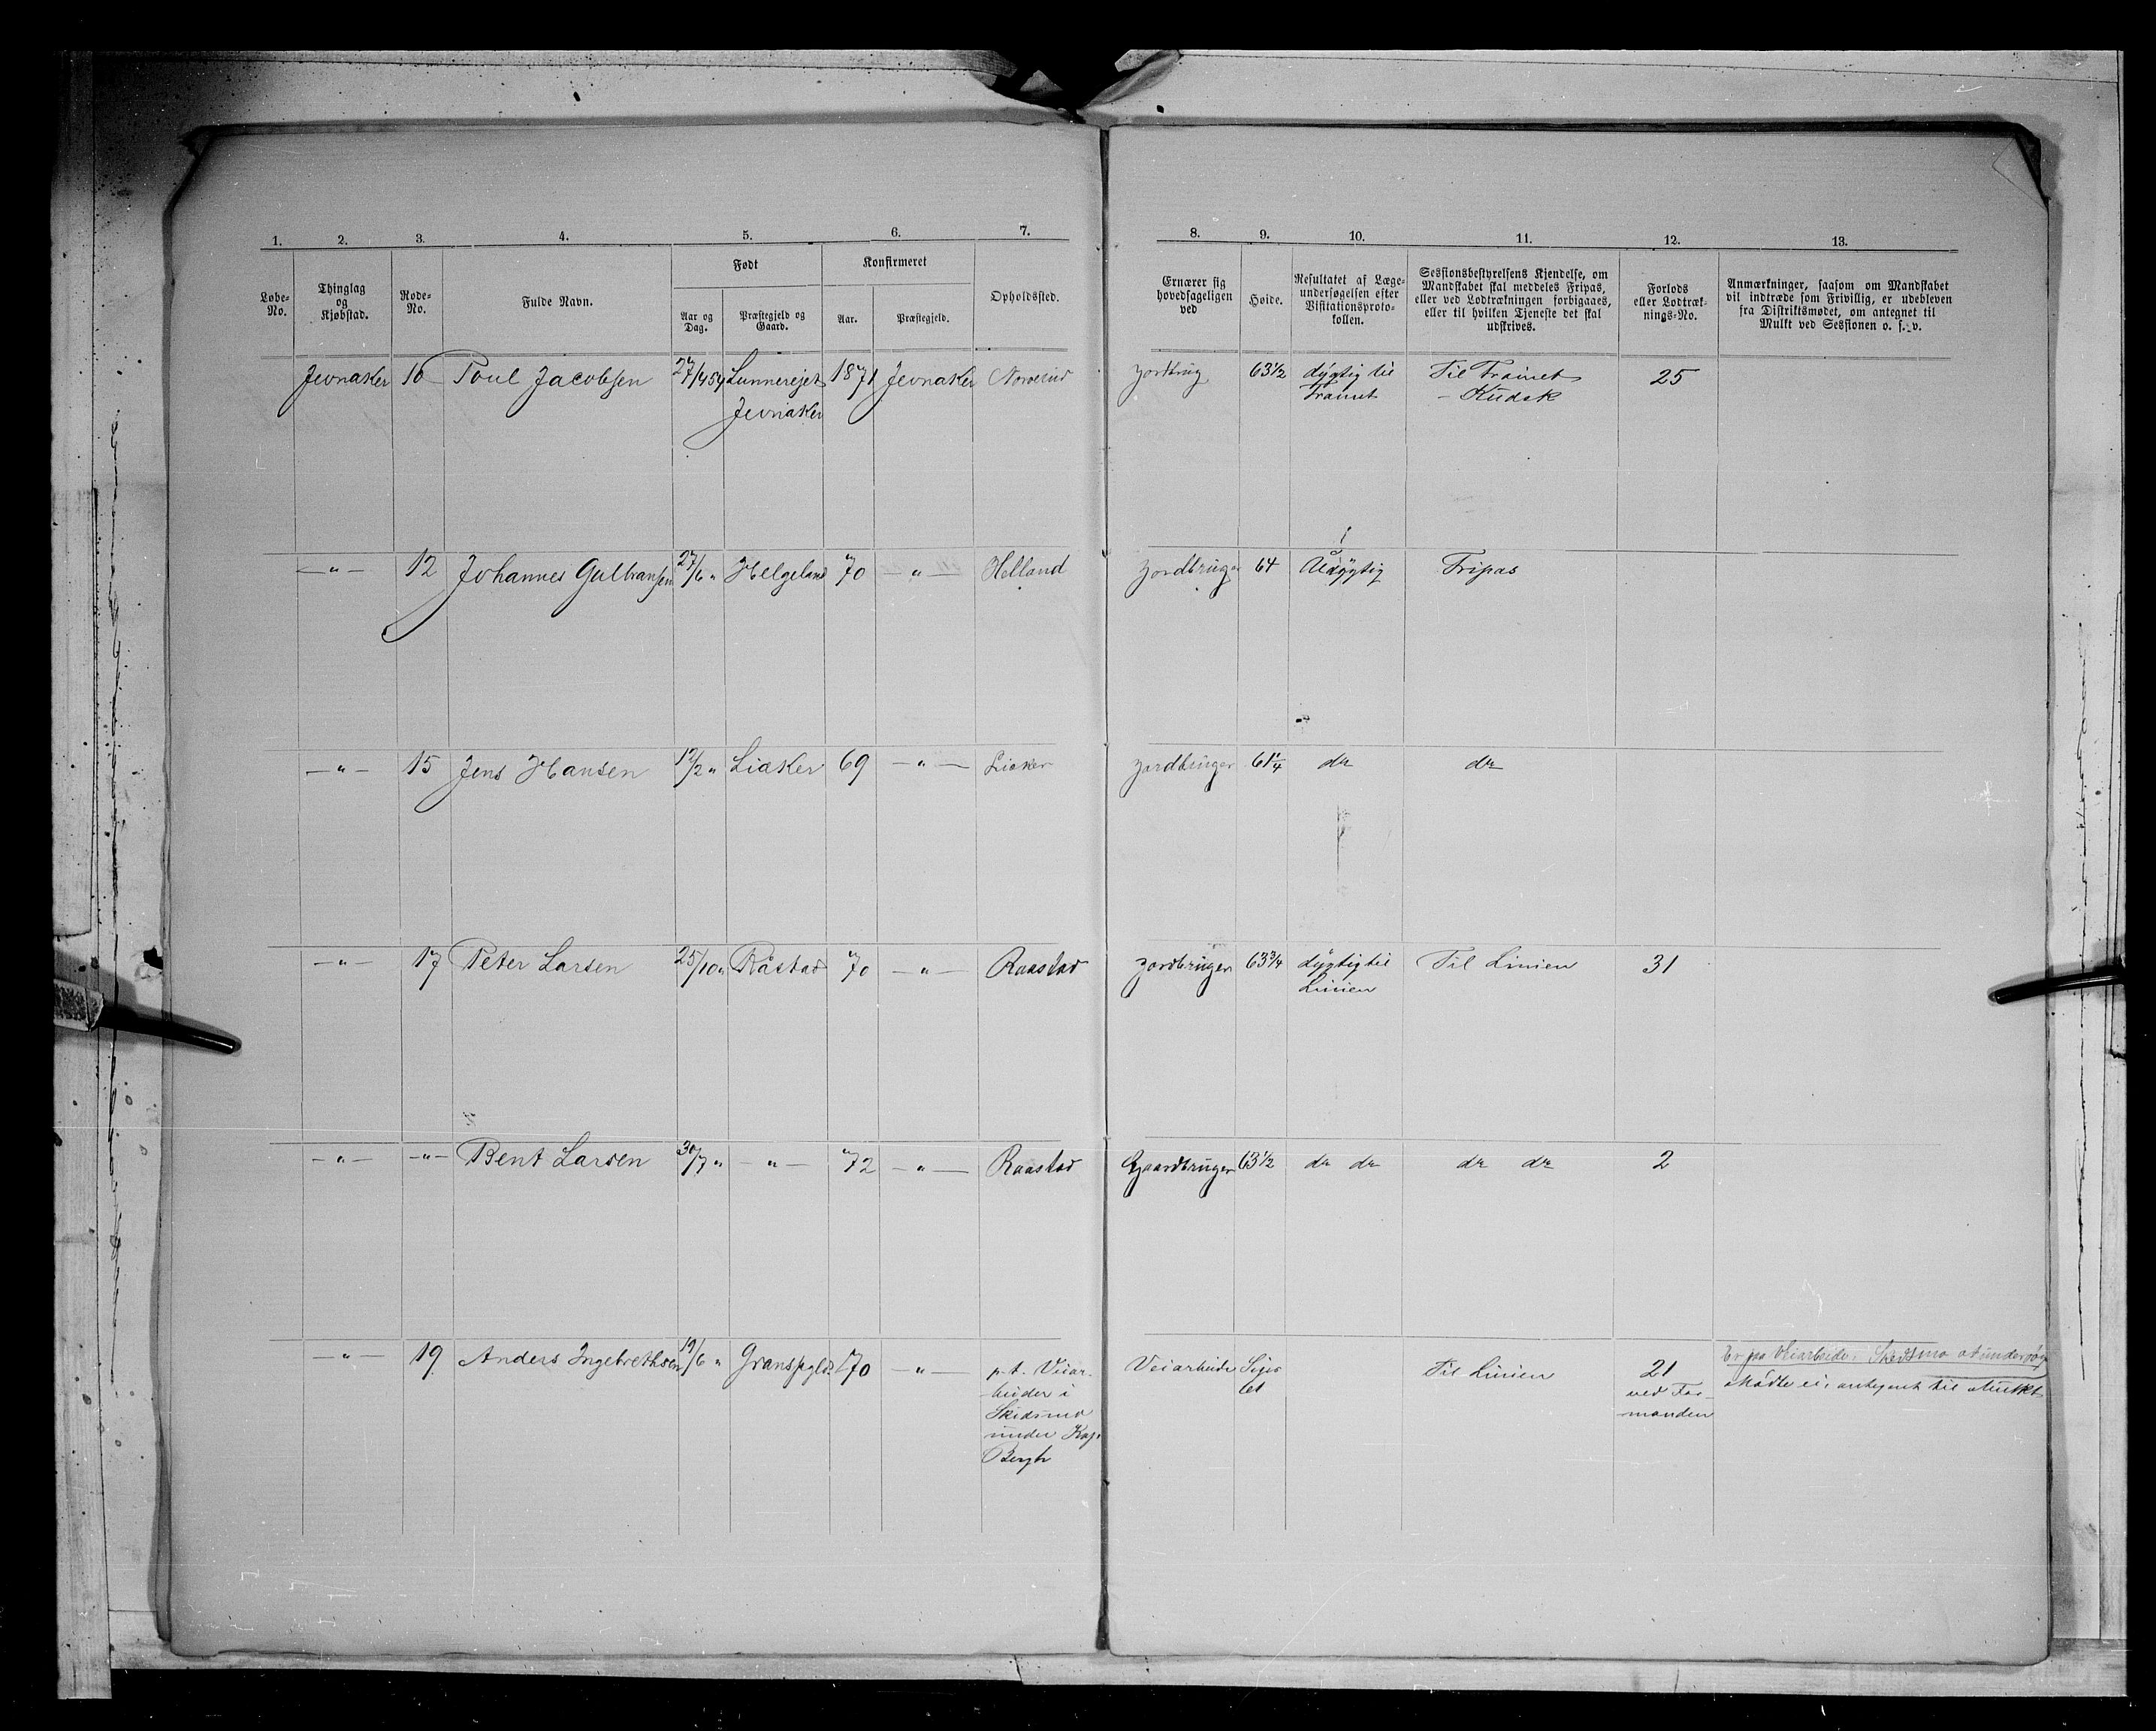 1. 2. 3. 4. 5. 6. 7. 8. 9. 10. 11. 12. 13.
Løbe-No.
Thinglag og Kjøbstad.
Rode-No.
Fulde Navn.
Født
Aar og Dag.
Præstegjeld og Gaard.
Konfirmeret
Aar.
Præstegjeld.
Opholdssted.
Ernærer sig hovedsageligen ved
Høide.
Resultatet af Læge-undersøgelsen efter Visitationsproto-kollen.
Sessionsbestyrelsens Kjendelse, om Mandskabet skal meddeles Fripas, eller ved Lodtrækningen forbigaaes, eller til hvilken Tjeneste det skal udskrives.
Forlods eller Lodtræk-nings-No.
Anmærkninger, saasom om Mandskabet vil indtræde som Frivillig, er udebleven fra Distriktsmødet, om antegnet til Mulkt ved Sessionen o. s. v.
Jevnaker 16 Poul Jacobsen 27/4 54 Lunnerejet 1871 Jevnaker jordbrug 63 1/2 dygtig til Til Trainet 25
Jevnaker Trainet - Kudsk
—"— 12 Johannes Gulbransen 27/6 " Helgeland 70 —"— Helland jordbruger 64 Udygtig Fripas
—"— 15 Jens Hansen 12/2 " Liaker 69 —"— Liaker jordbruger 61 1/4 do do
—"— 17 Peter Larsen 25/10 " Råstad 70 —"— Raastad jordbruger 63 3/4 dygtig til Til Linien 31
Linien
—"— —"— Bent Larsen 30/7 " —"— 72 —"— Raastad Gaardbruger 63 1/2 do do do do 2
—"— 19 Anders Ingebrethsen 19/6 " Granspgld. 70 —"— p.t. Veiar- Veiarbeide Til Linien 21 Er på Veiarbeide i Skedsmo
beider i ved For- Mødte ei, antegnet til Mulkt
Skidsmo manden
under Kap.
Bergh